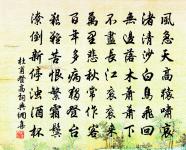 風急天高猿嘯哀
渚清沙白鳥飛回
無邊落木蕭蕭下
不盡長江衮衮來
萬里悲秋常作客
百年多病獨登臺
艱難苦恨繁霜鬢
潦倒新停濁酒杯
杜甫登高詞